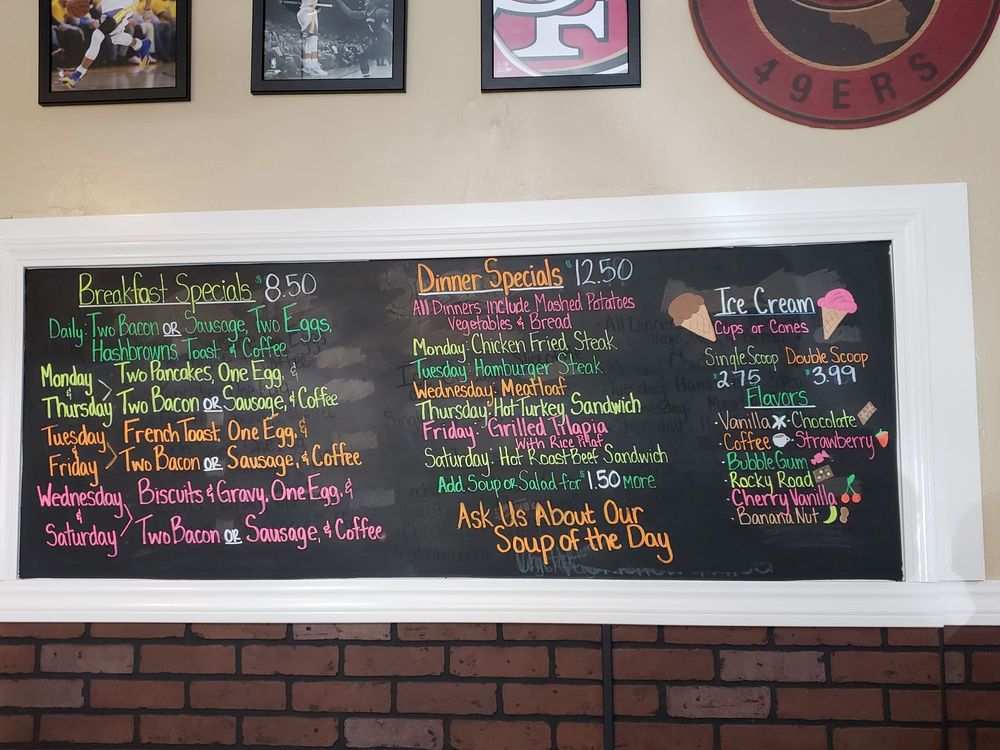 SF
49ERS
Breakfast Specials $8.50
Daily: Two Bacon OR Sausage, Two Eggs,
Hashbrowns, Toast, & Coffee
Monday & Thursday > Two Pancakes, One Egg, &
Two Bacon OR Sausage, & Coffee
Tuesday & Friday > French Toast, One Egg, &
Two Bacon OR Sausage, & Coffee
Wednesday & Saturday > Biscuits & Gravy, One Egg, &
Two Bacon OR Sausage, & Coffee
Dinner Specials $12.50
All Dinners include Mashed Potatoes
Vegetables & Bread
Monday: Chicken Fried Steak
Tuesday: Hamburger Steak
Wednesday: Meatloaf
Thursday: Hot Turkey Sandwich
Friday: Grilled Tilapia
With Rice Pilaf
Saturday: Hot Roast Beef Sandwich
Add Soup or Salad for $1.50 more
Ask Us About Our
Soup of the Day
Ice Cream
Cups or Cones
Single Scoop Double Scoop
$2.75 $3.99
Flavors
·Vanilla ·Chocolate
·Coffee ·Strawberry
·Bubble Gum
·Rocky Road
·Cherry Vanilla
·Banana Nut